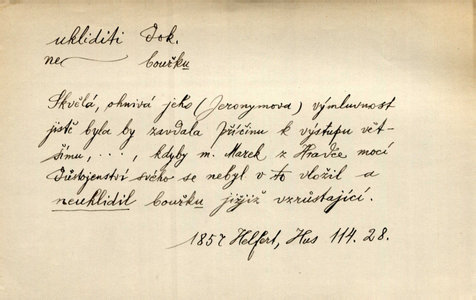 ukliditi Dok.
ne bouřku
Skvělá, ohnivá jeho (Jeronymova) výmluvnost
jistě byla by zavdala příčinu k výstupu vět-
šímu, . . . , kdyby m. Marek z Hradce mocí
Důstojenství svého se nebyl v to vložil a
neuklidil bouřku jižjiž vzrůstající.
1857 Helfert, Hus 114. 28.